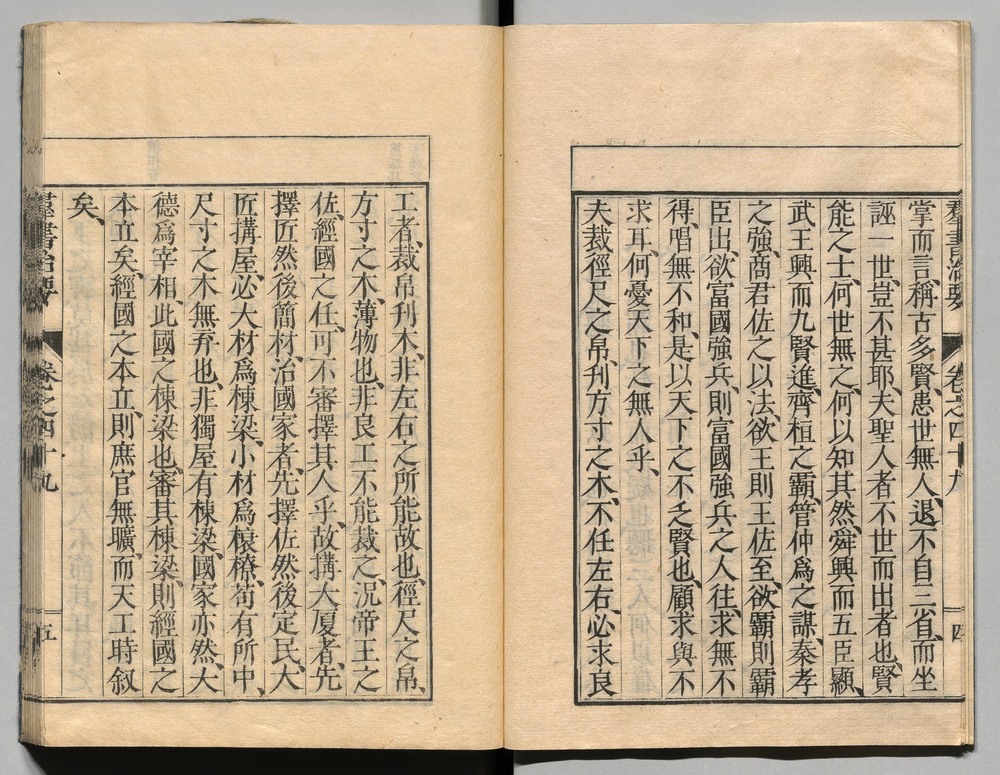 羣書治要 卷之四十九 四
掌而言、稱古多賢、患世無人、退不自三省、而坐
誣一世、豈不甚耶、夫聖人者、不世而出者也、賢
能之士、何世無之、何以知其然、舜興而五臣顯、
武王興而九賢進、齊桓之霸、管仲爲之謀、秦孝
之強、商君佐之以法、欲王則王佐至、欲霸則霸
臣出、欲富國強兵、則富國強兵之人往、求無不
得、唱無不和、是以天下之不乏賢也、顧求與不
求耳、何憂天下之無人乎、
夫裁徑尺之帛、刋方寸之木、不任左右、必求良
工者、裁帛刋木、非左右之所能故也、徑尺之帛、
方寸之木、薄物也、非良工不能裁之、況帝王之
佐、經國之任、可不審擇其人乎、故搆大厦者、先
擇匠然後簡材、治國家者、先擇佐然後定民、大
匠搆屋、必大材爲棟梁、小材爲榱橑、苟有所中、
尺寸之木無弃也、非獨屋有棟梁、國家亦然、大
德爲宰相、此國之棟梁也、審其棟梁、則經國之
本立矣、經國之本立、則庶官無曠、而天工時叙
矣、
羣書治要 卷之四十九 五